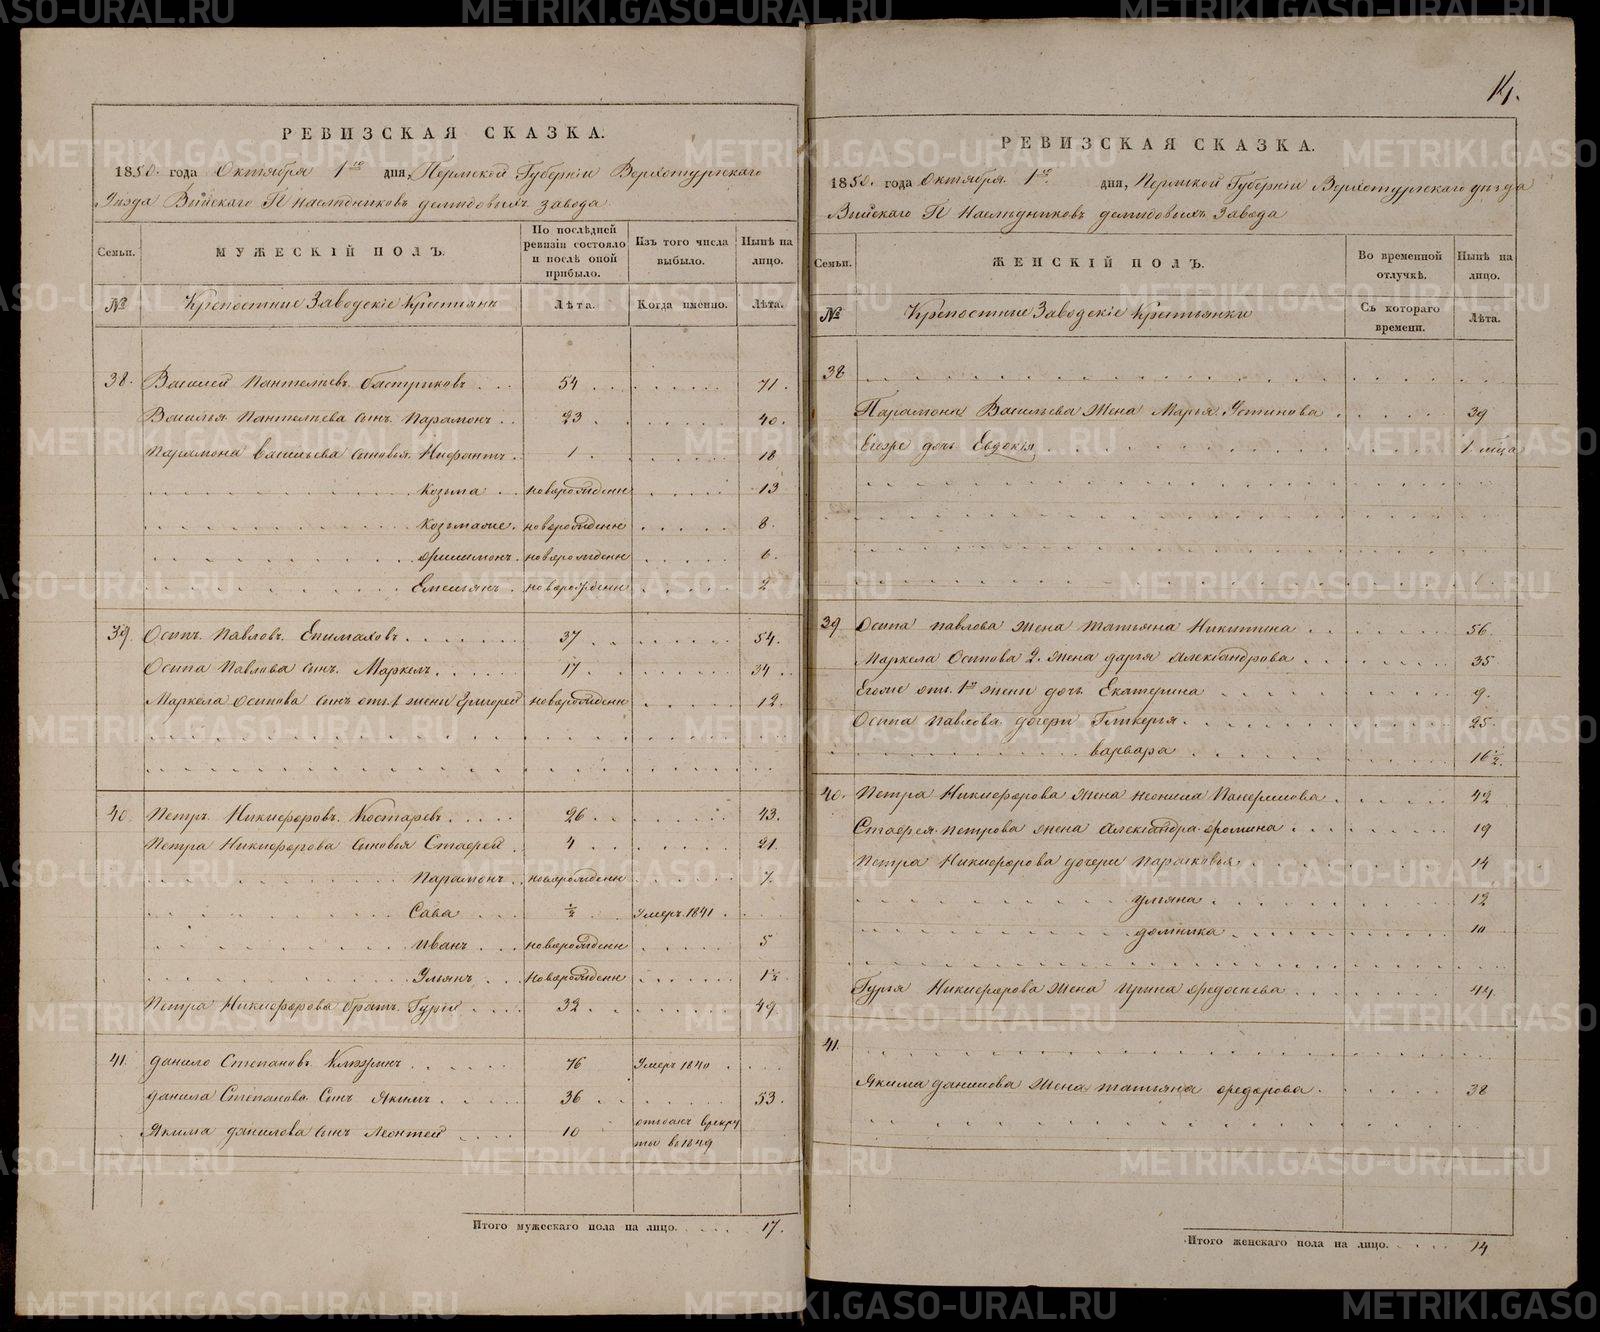 14.
РЕВИЗСКАЯ СКАЗКА.
1850. года Октября 1го дня, Пермской Губернiи Верхотурскаго
Уѣзда Выйскаго Наслѣдниковъ демидовыхъ завода
Семьи.
МУЖЕСКІЙ ПОЛЪ.
По послѣдней ревизіи состояло и послѣ оной прибыло.
Изъ того числа выбыло.
Нынѣ на лицо.
№
Крепостные Заводскiе Крестьяне
Лѣта.
Когда именно.
Лѣта.
38. Василей Пантелѣевъ Бастриковъ 54 71.
Василья Пантелѣева сынъ Парамонъ 23 40.
Парамона Васильева сыновья Ниѳантъ 1 18
Козьма новорожденн 13
новорожденн 8.
Филимонъ новорожденн 6.
Емельянъ новорожденн 2
39. Осипъ Павловъ Епимаховъ 37 54.
Осипа Павлова сынъ Маркелъ 17 34
Маркела Осипова сынъ отъ 1 жены Григорей новорожденн 12.
40. Петръ Никифоровъ Костаревъ 26 43.
Петра Никифорова сыновья Стафей 4 21.
Парамонъ новорожденн 7.
Сава ½ Умеръ 1841
Иванъ новорожденн 5
Ульянъ новорожденн 1½
Петра Никифорова братъ Гурiй 32 49.
41. данило Степановъ 76 Умеръ 1840
данила Степанова Сынъ Якимъ 36 53.
Якима данилова сынъ Леонтей 10 отданъ врекру
ты въ 1849
Итого мужескаго пола на лицо. 17.
РЕВИЗСКАЯ СКАЗКА.
1850. года Октября 1го. дня, Пермской Губернiи Верхотурскаго уѣзда
Выйскаго Наслѣдниковъ демидовыхъ Завода
Семьи.
ЖЕНСКІЙ ПОЛЪ.
Во временной отлучкѣ.
Нынѣ на лицо.
№
Крепостные Заводскiе Крестьянки
Съ котораго времени.
Лѣта.
38
Парамона Васильева Жена Марья Устинова 39
Егоже дочь Евдокiя 1 мѣца
39 Осипа Павлова жена татьяна Никитина 56
Маркела Осипова 2. жена дарья Александрова 35
Егоже отъ 1й жены дочь Екатерина 9.
Осипа Павлова дочери Гликерья 25
варвара 16½.
40. Петра Никифорова жена Неонила Панфилова 42
Стафея Петрова жена Александра Фомина 19
Петра Никифорова дочери Парасковья 14
ульяна 12
домника 10
Гурья Никифорова жена Ирина Федосѣева 44
41.
Якима данилова жена татьяна Федорова 38
Итого женскаго пола на лицо. 14
METRIKI.GASO-URAL.RU